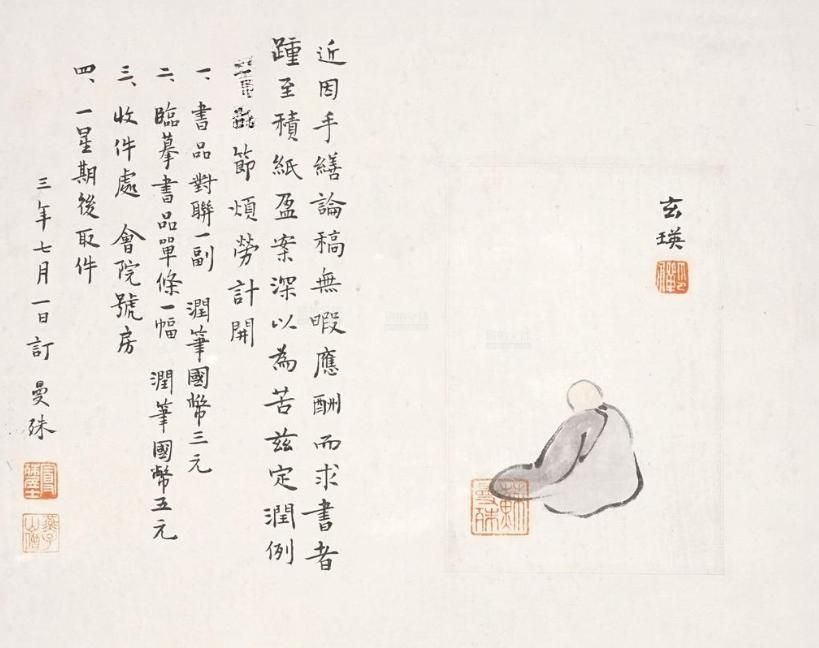 玄瑛
蘇曼殊
近因手繕論稿無暇應酬而求書者
踵至積紙盈案深以為苦茲定潤例
節煩勞計開
一、書品對聯一副 潤筆國幣三元
二、臨摹書品單條一幅 潤筆國幣五元
三、收件處 會院號房
四、一星期後取件
三年七月一日訂 曼殊